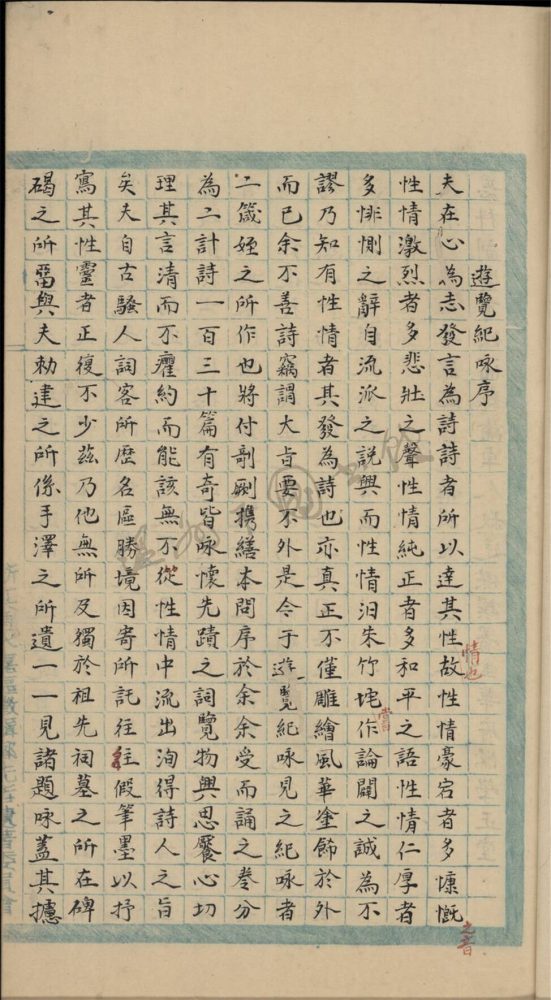 遊覽紀咏序
夫在心為志發言為詩詩者所以達其性情也故性情豪宕者多慷慨之音
性情激烈者多悲壯之聲性情純正者多和平之語性情仁厚者
多悱惻之辭自流派之說興而性情汨朱竹垞嘗作論闢之誠為不
謬乃知有性情者其發為詩也亦真正不僅雕繪風華塗飾於外
而已余不善詩竊謂大旨要不外是今于遊覽紀咏見之紀咏者
二箴姪之所作也將付剞劂携繕本問序於余余受而誦之卷分
為二計詩一百三十篇有奇皆咏懷先蹟之詞覽物興思饜心切
理其言清而不癯約而能該無不從性情中流出洵得詩人之旨
矣夫自古騷人詞客所歷名區勝境因寄所託往往假筆墨以抒
寫其性靈者正復不少茲乃他無所及獨於祖先祠墓之所在碑
碣之所畱與夫勅建之所係手澤之所遺一一見諸題咏蓋其攄